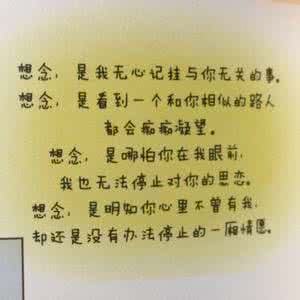 想念，是我无心记挂与你无关的事。
想念，是看到一个和你相似的路人
都会痴痴凝望。
想念，是哪怕你在我眼前，
我也无法停止对你的思恋。
想念，是明知你心里不曾有我，
却还是没有办法停止的一厢情愿。